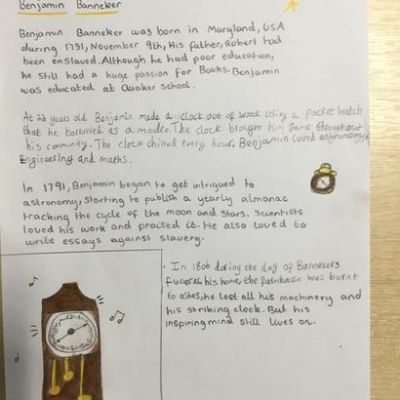 Benjamin Banneker
Benjamin Banneker was born in Maryland, USA
during 1731, November 9th, His father, Robert had
been enslaved. Although he had poor education,
he still had a huge passion for Books. Benjamin
was educated at Quaker school.
At 22 years old Benjamin made a clock out of wood using a pocket watch
that he borrowed as a model. The clock brought him fame
his community. The clock chimed every hour. Benjamin loved astronomy,
Engineering and maths.
In 1791, Benjamin began to get intrigued to
astronomy, starting to publish a yearly almanac
tracking the cycle of the moon and stars. Scientists
loved his work and praised it. He also loved to
write essays against slavery.
. In 1806 during the day of Bannekers
funeral his home, the was burnt
to ashes, he lost all his machinery and
his striking clock. But his
inspiring mind still lives on.